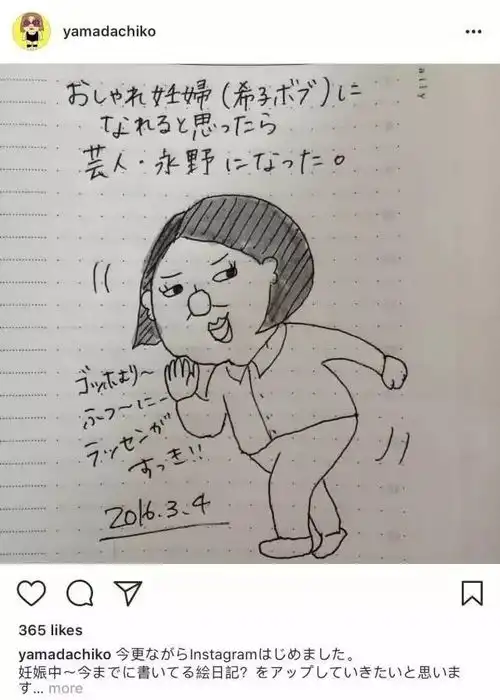 yamadachiko
ailly
おしゃれ妊婦(希子ボブ)に
なれると思ったら
芸人・永野になった。
ゴッホより〜
ふつ〜にー
ラッセンが
すっき!!
2016.3.4
365 likes
yamadachiko 今更ながらInstagramはじめました。
妊娠中〜今までに書いてる絵日記?をアップしていきたいと思いま
す... more